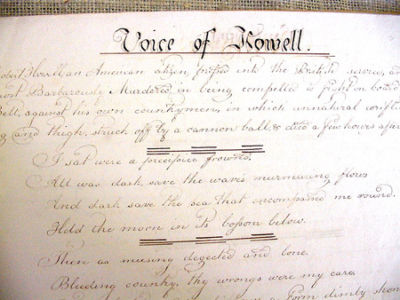 Voice of Howell.
Robert Howell an American citizen, pressed into the British service, an
most Barbarously Murdered in being compelled to fight on board
Bell, against his own countrymen, in which unnatural
g and thigh, struck off by a cannon ball, & died a few hours after
I sat were a precipice frowned,
All was dark, save the waves murmuring flows
And dark save the sea that me round,
Held the moon in its bossom below.
There as museing degected and lone
Bleeding country, thy wrongs were my care,
a Form dimly shon